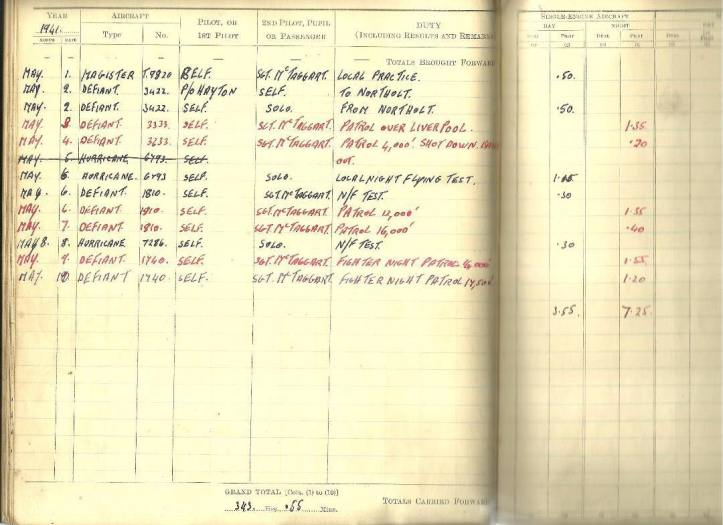 YEAR AIRCRAFT PILOT, OR 2ND PILOT, PUPIL DUTY SINGLE-ENGINE AIRCRAFT
1941. Type No. 1ST PILOT OR PASSENGER (INCLUDING RESULTS AND REMARKS DAY NIGHT
MONTH DATE DUAL PILOT DUAL PILOT DUAL
(1) (2) (3) (4)
— — — — — — — TOTALS BROUGHT FORWARD
MAY 1. MAGISTER T.9820 SELF. SGT. McTAGGART. LOCAL PRACTICE. .50.
MAY. 2. DEFIANT. 3422. P/O HAYTON SELF. TO NORTHOLT.
MAY. 2. DEFIANT. 3422. SELF. SOLO. FROM NORTHOLT. .50.
MAY. 3. DEFIANT. 3333. SELF. SGT. McTAGGART. PATROL OVER LIVERPOOL. 1.35
MAY. 4. DEFIANT. 3333. SELF. SGT. McTAGGART. PATROL 4,000' SHOT DOWN. .20
OUT.
MAY. 6. HURRICANE 6793. SELF.
MAY 6. HURRICANE. 6793 SELF. SOLO. LOCAL NIGHT FLYING TEST. 1.15
MAY. 6. DEFIANT. 1810. SELF. SGT. McTAGGART. N/F TEST. .30
MAY. 6. DEFIANT. 1810. SELF. SGT McTAGGART. PATROL 12,000' 1.35
MAY. 7. DEFIANT. 1810. SELF. SGT. McTAGGART. PATROL 16,000' .40
MAY 8. 8. HURRICANE. 7286. SELF. SOLO. N/F TEST. .30
MAY. 9. DEFIANT. 1740. SELF. SGT. McTAGGART. FIGHTER NIGHT PATROL 1.55
MAY. 10 DEFIANT 1740 SELF. SGT. McTAGGART. FIGHTER NIGHT PATROL 17,500' 1.20
3.55. 7.25.
GRAND TOTAL [Cols. (1) to (10)]
343. Hrs. .55 Mins. TOTALS CARRIED FORWARD